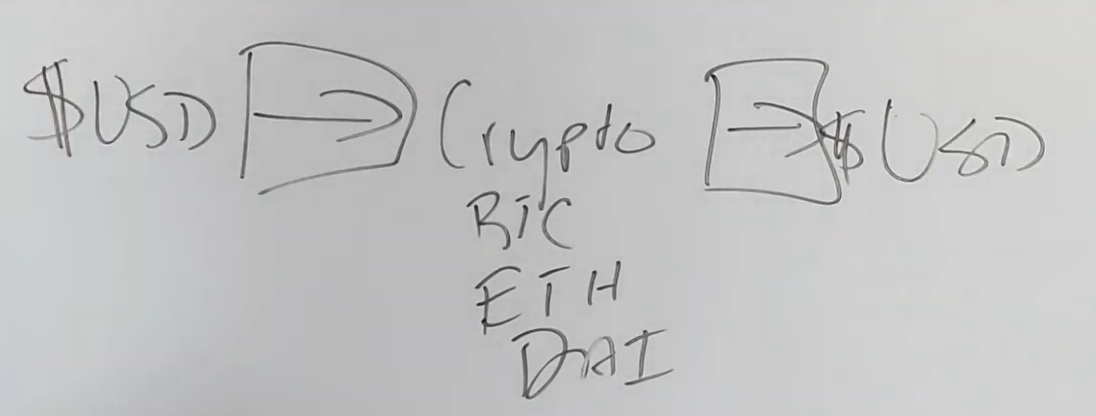 $USD → Crypto → $USD
BTC
ETH
DAI